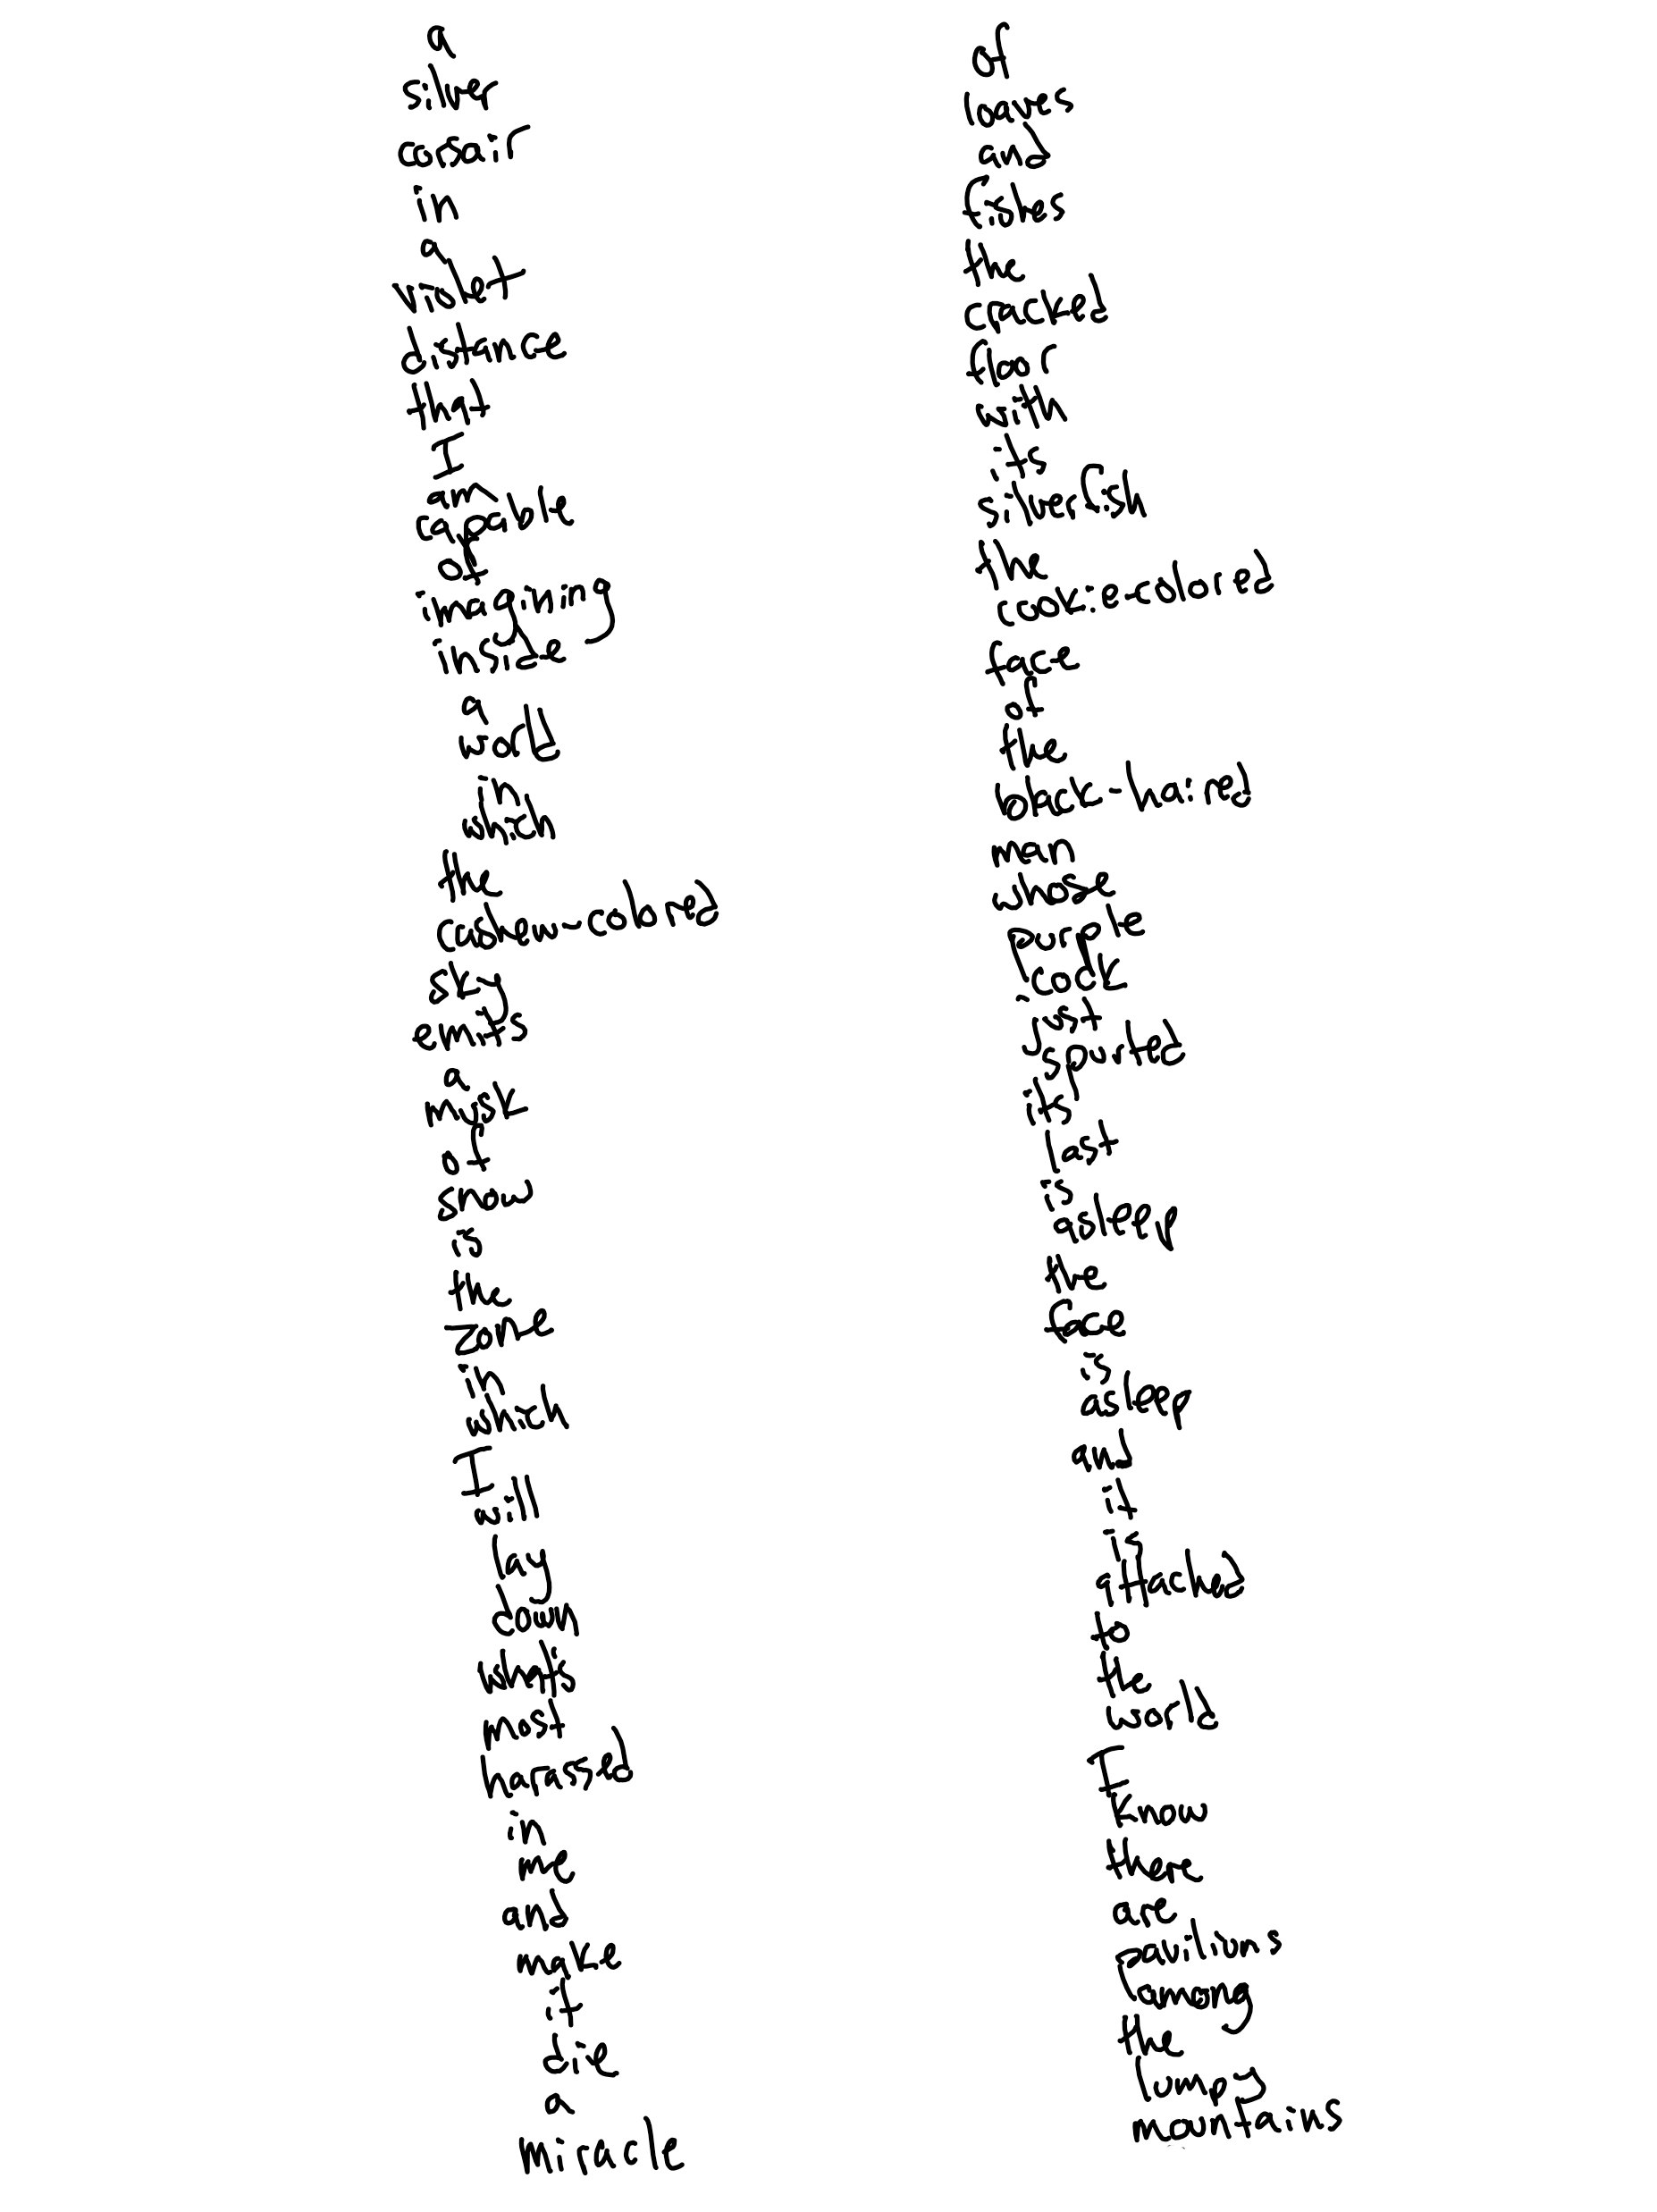 a
silver
corsair
in
a
violet
distance
that
I
am
capable
of
imagining
inside
a
world
in
which
the
cashew-colored
sky
emits
a
musk
of
snow
is
the
Zone
in
which
I
will
lay
down
what's
most
harassed
in
me
and
make
it
die
a
miracle
of
loaves
and
fishes
the
cracked
floor
with
its
silverfish
the
cookie-colored
face
of
the
black-haired
man
whose
purple
cock
just
spurted
its
last
is
asleep
the
face
is
asleep
and
it
is
attached
to
the
world
I
know
there
are
pavilions
among
the
lumpy
mountains